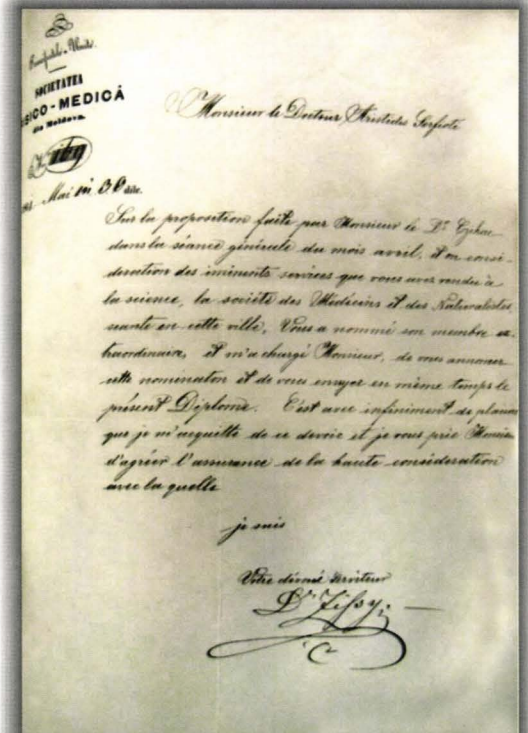 SOCIETATEA
SICO-MEDICĂ
din Moldova.
Mai in 30 dile.
Monsieur le Docteur Aristides
Sur la proposition faite par Monsieur le Dr Czihac
dans la séance générale du mois avril, et en consi-
deration des iminents services que vous avez rendus à
la science, la société des Médecins et des Naturalistes
nante en cette ville, Vous a nommé son membre ex-
traordinaire, et m'a chargé Monsieur, de vous annoncer
cette nomination et de vous envoyer en même temps le
présent Diplome. C'est avec infiniment de plaisir
que je m'acquitte de ce devoir et je vous prie Monsieur
d'agréer l'assurance de la haute consideration
avec la quelle
je suis
Votre dévoué serviteur
Dr